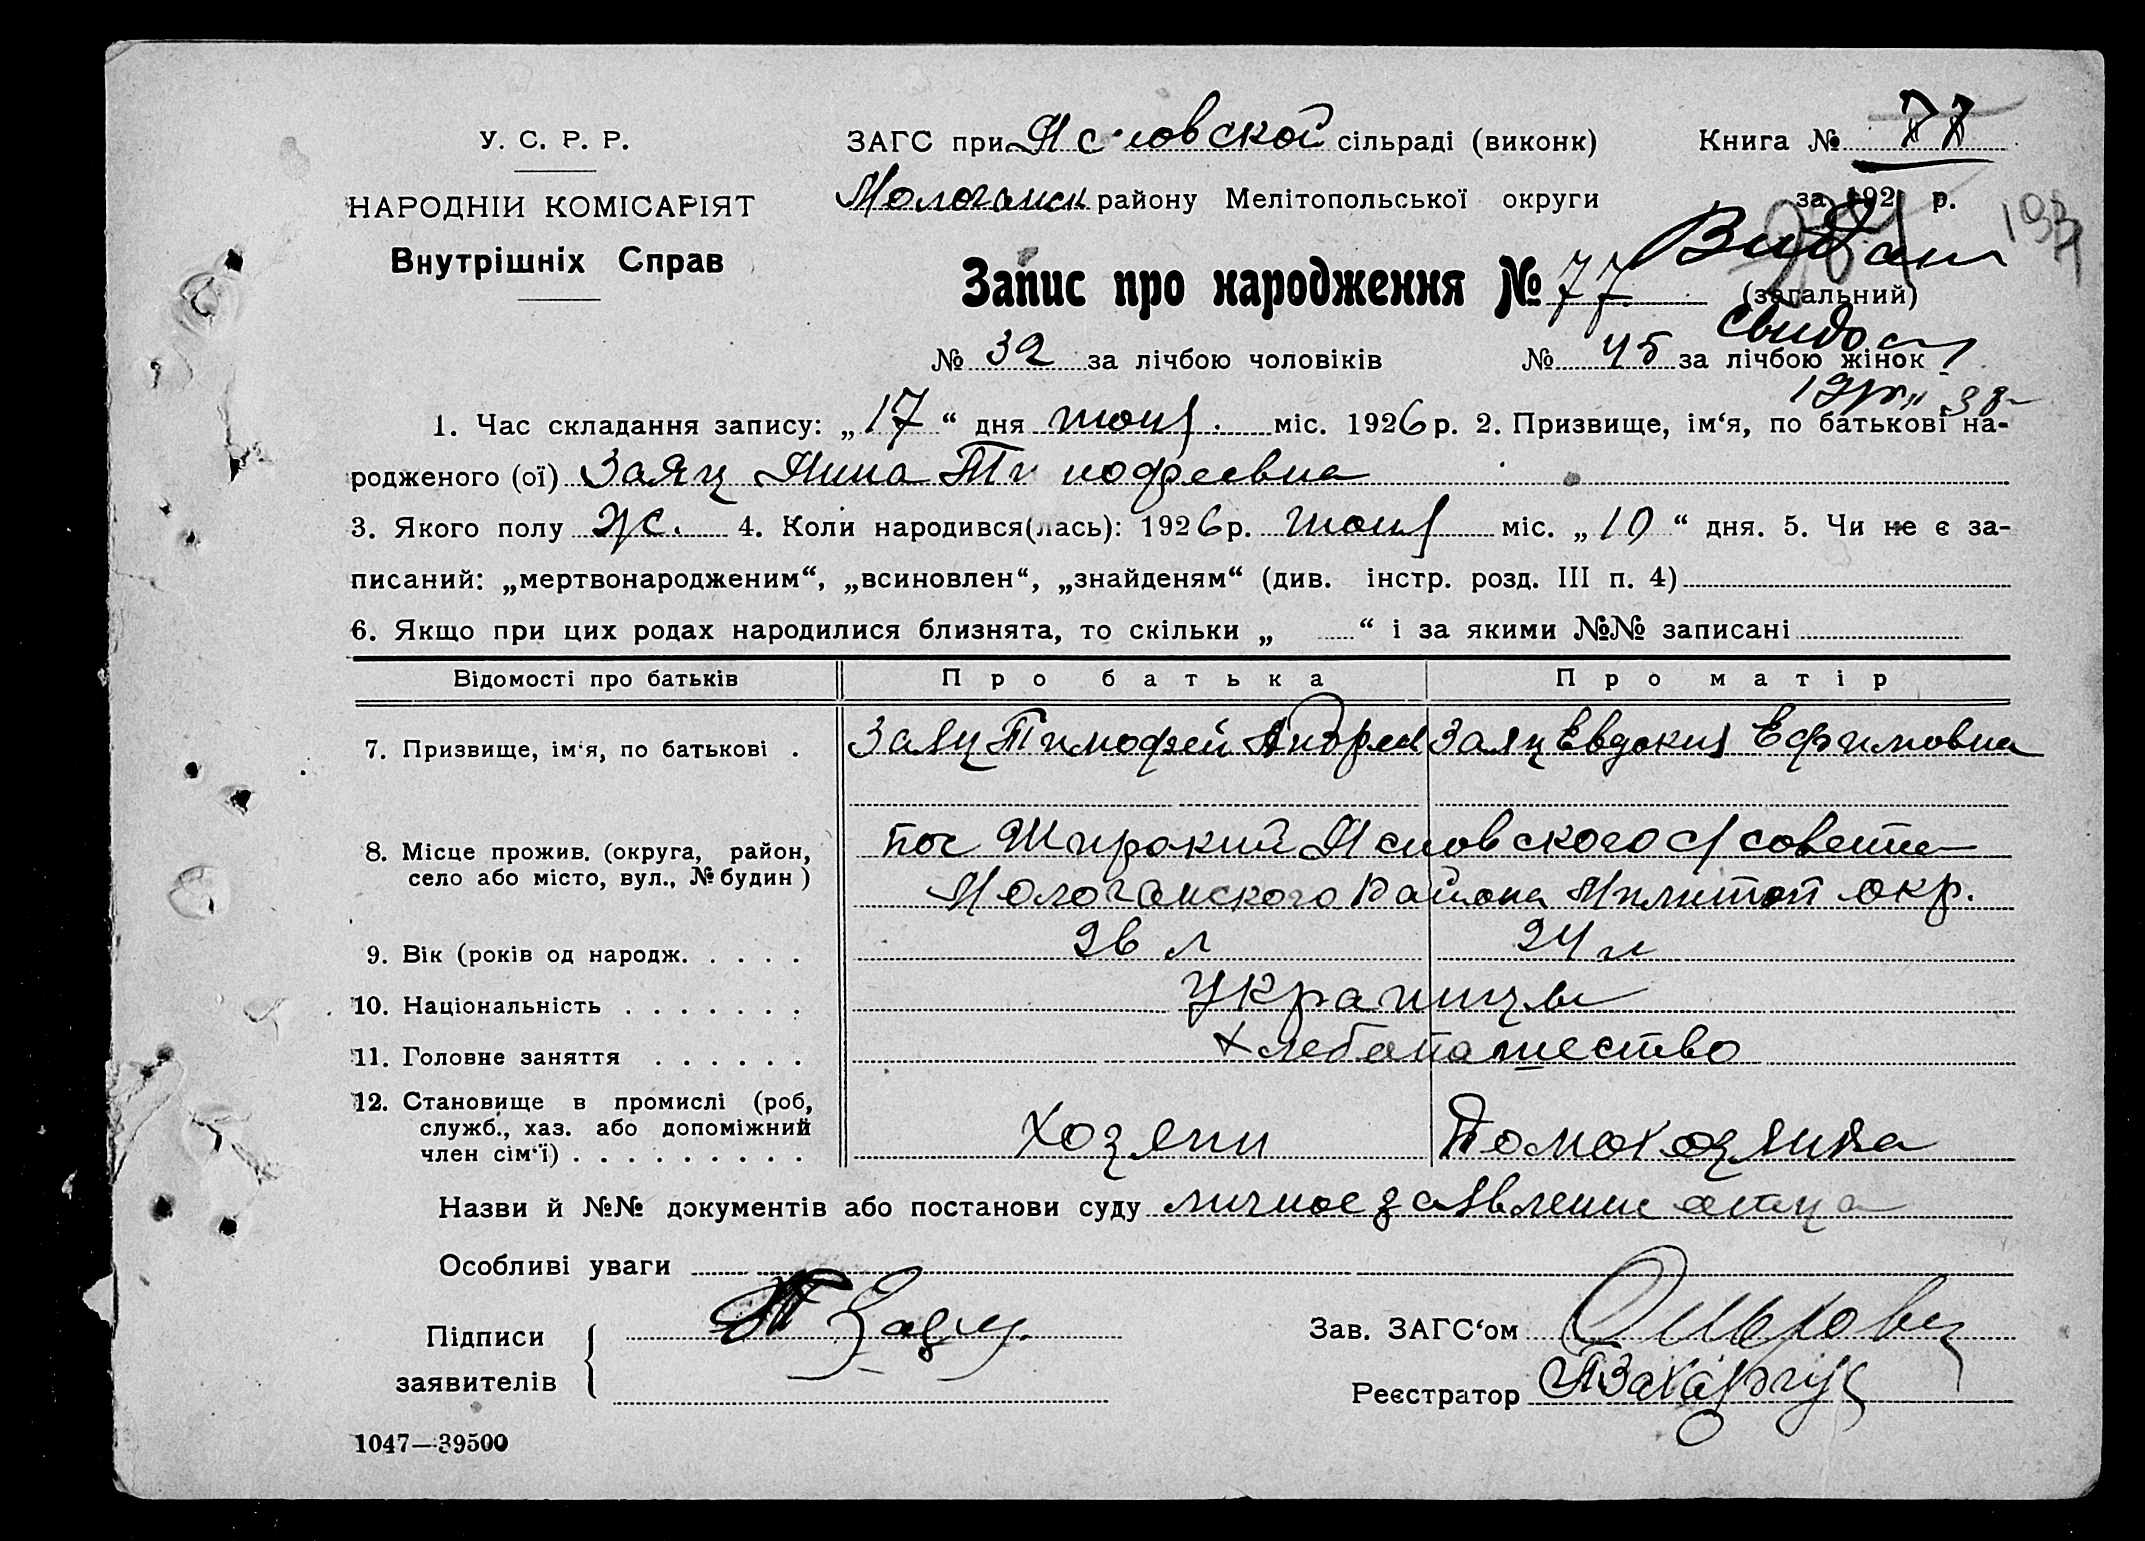 У. С. Р. Р.
НАРОДНІЙ КОМІСАРІЯТ
Внутрішніх Справ
ЗАГС при сільраді (виконк)
Книга № 77
района Мелітопольської округи
за 192 р.
193
Видан
Запис про народження № 77 (загальний)
№ 32 за лічбою чоловіків № 45 за лічбою жінок
1. Час складання запису: „17“ дня июня міс. 1926 р. 2. Призвище, ім‘я, по батькові на-
родженого (ої) Заяц Нина Тимофеевна
3. Якого полу ж. 4. Коли народився(лась): 1926 р. июня міс. „10“ дня. 5. Чи не є за-
писаний: „мертвонародженим“, „всиновлен“, „знайденям“ (див. інстр. розд. III п. 4)
6. Якщо при цих родах народилися близнята, то скільки „ “ і за якими №№ записані
Відомості про батьків Про батька Про матір
7. Призвище, ім‘я, по батькові . Заяц Тимофей Андреев Заяц Евдокия Ефимовна
8. Місце прожив. (округа, район,
село або місто, вул., № будин) пос Широкий с/совета
района окр.
9. Вік (років од народж. . . . . 26 л 24 л
10. Національність . . . . . . . украинцы
11. Головне заняття . . . . . . Хлебопашество
12. Становище в промислі (роб,
служб., хаз. або допоміжний
член сім‘ї) . . . . . . . . . Хозяин Домохозяйка
Назви й №№ документів або постанови суду личное заявление отца
Особливі уваги
Підписи
заявителів
Т Заяц
Зав. ЗАГС‘ом
Реєстратор
1047—39500